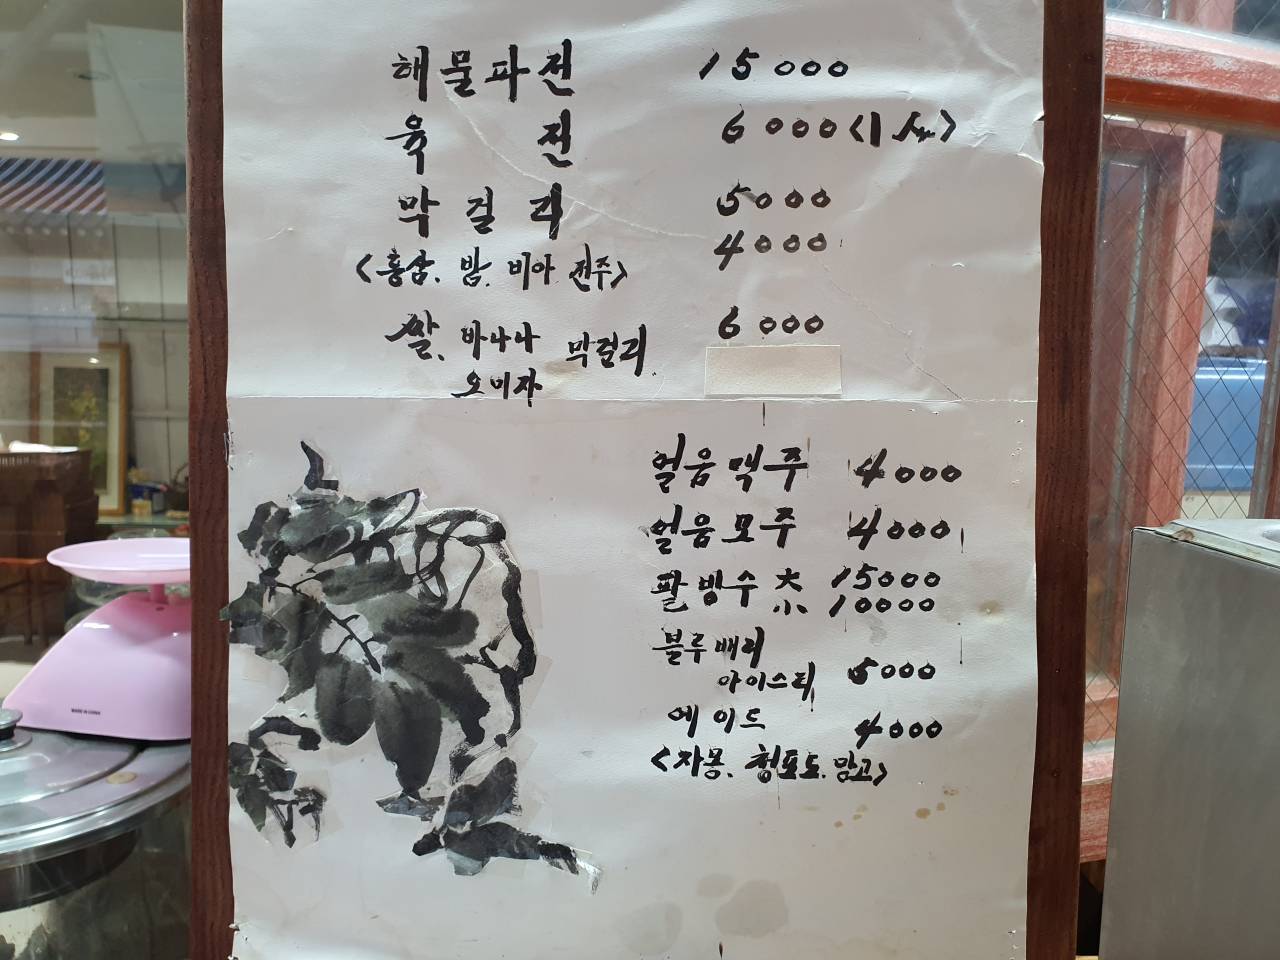 해물파전 15000
육전 6000 <1人>
막걸리 5000
4000
<홍삼. 밤. 비아 전주>
쌀. 바나나 막걸리 6000
오미자
얼음맥주 4000
얼음모주 4000
팥빙수 大 15000
小 10000
블루베리
아이스티 5000
에이드 4000
<자몽. 청포도. 망고>
MADE IN CHINA